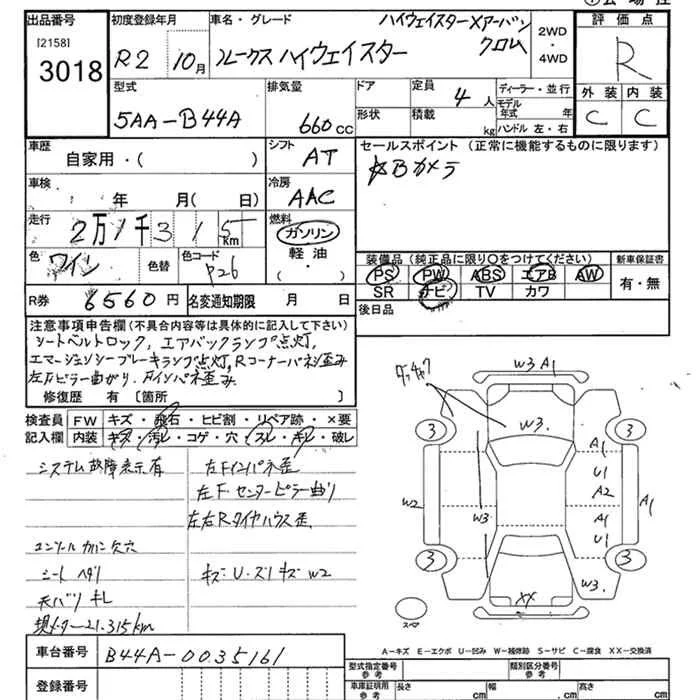 出品番号
[2158]
3018
初度登録年月
R2 10月
車名・グレード
ハイウェイスターXアーバン
クロム
ルークス ハイウェイスター
2WD
・
4WD
評価点
R
外装 内装
C C
型式
5AA-B44A
排気量
660cc
ドア
形状
定員
4人
積載
kg
ディーラー・並行
モデル
年式 年
ハンドル 左・右
車歴
自家用・( )
シフト
AT
セールスポイント(正常に機能するものに限ります)
☆Bカメラ
車検
年 月( 日)
冷房
AAC
走行
2万1千315km
燃料
ガソリン
軽油
( )
色
ワイン
色替
色コード
P26
装備品(純正品に限り○をつけてください)
PS PW ABS エアB AW
SR ナビ TV カワ
新車保証書
有・無
R券
6560円
名変通知期限 月 日
後日品
注意事項申告欄(不具合内容等は具体的に記入して下さい)
シートベルトロック, エアバックランプ点灯,
エマージェンシーブレーキランプ点灯, Rコーナーパネル歪み
左右ピラー曲がり, Fインパネ歪み
修復歴 有 [箇所 ]
検査員
記入欄
FW キズ・飛石・ヒビ割・リペア跡・×要
内装 キズ・汚レ・コゲ・穴・スレ・キレ・破レ
システム故障表示有
左Fインパネ歪
左F.センターピラー曲り
左右Rタイヤハウス歪
コンソール カバー欠穴
シート ヘタリ
キズ・U・スリキズ W2
天バリ キレ
現メーター21,315km
W3 A1
W3.
3 3
A1
U1
W2
A2
A1
W3
A1
U1
3 3
W3.
XX
スペア
A-キズ E-エクボ U-凹み W-補修跡 S-サビ C-腐食 XX-交換済
車台番号
B44A-0035161
登録番号
型式指定番号
参考
類別区分番号
参考
車庫証明用
参考
長さ cm
幅 cm
高さ cm